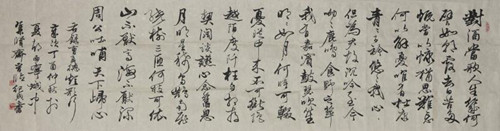 對酒當歌人生幾何
譬如朝露去日苦多
慨當以慷憂思難忘
何以解憂唯有杜康
青青子衿悠悠我心
但為君故沉吟至今
呦呦鹿鳴食野之苹
我有嘉賓鼓瑟吹笙
明明如月何時可掇
憂從中來不可斷絕
越陌度阡枉用相存
契闊談讌心念舊恩
月明星稀烏鵲南飛
繞樹三匝何枝可依
山不厭高海不厭深
周公吐哺天下歸心
右錄曹孟德短歌行